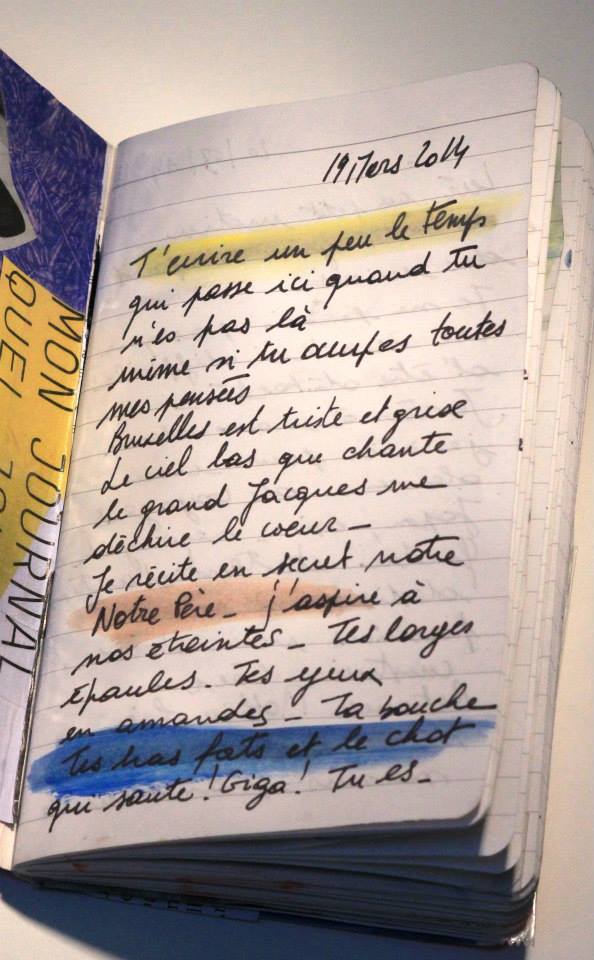 19 Mars 2014
T'écrire un peu le temps
qui passe ici quand tu
n'es pas là
même si tu occupes toutes
mes pensées
Bruxelles est triste et grise
Le ciel bas que chante
le grand Jacques me
déchire le coeur _
Je récite en secret notre
Notre Père _ j'aspire à
nos étreintes _ Tes larges
épaules. Tes yeux
en amandes _ Ta bouche
Tes bras forts et le chat
qui saute ! Giga ! Tu es _
MON JOURNAL
QUEL